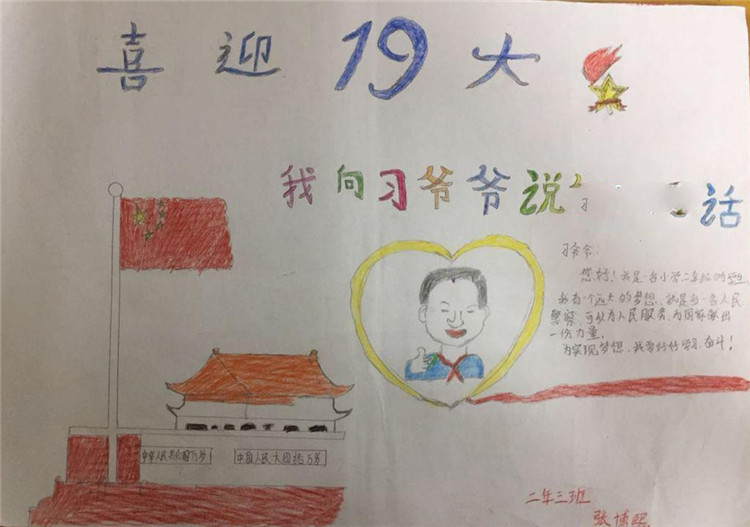 喜迎19大
我向习爷爷说 话
习爷爷:
您好!我是一名小学二年级的学生,
我有一个远大的梦想,就是当一名人民
警察,可以为人民服务,为国家献出
一份力量。
为实现梦想,我要好好学习,奋斗!
中华人民共和国万岁
中国人民大团结万岁
二年三班
张博